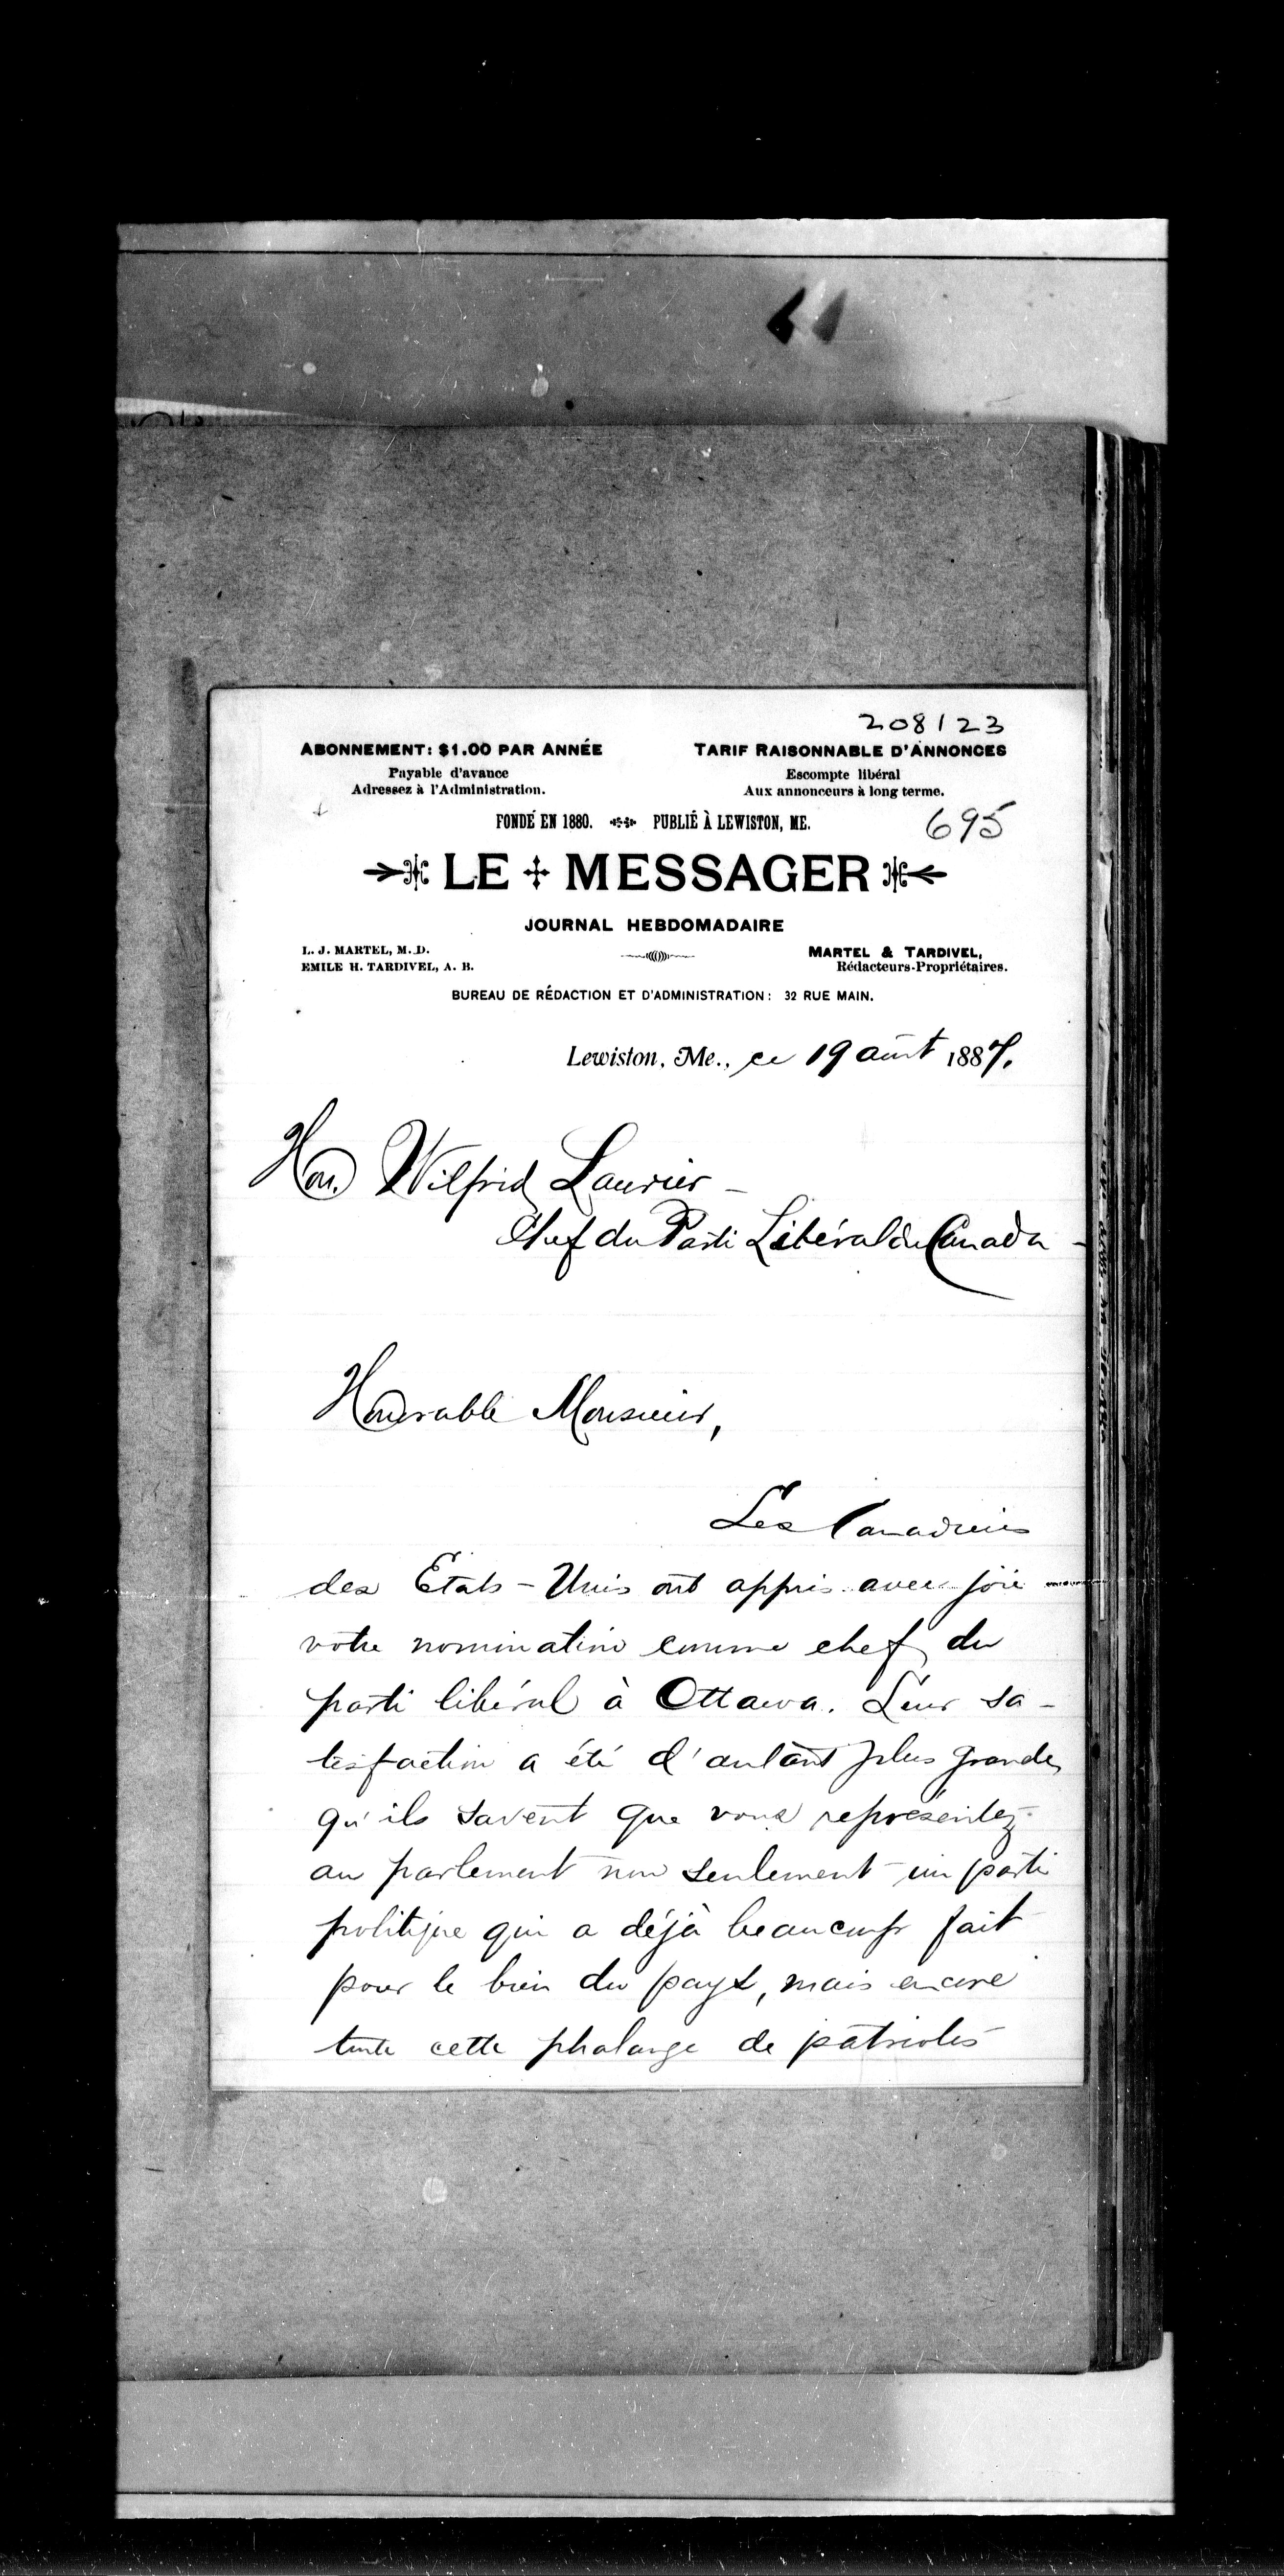 208123
ABONNEMENT: $1.00 PAR ANNÉE
Payable d'avance
Adressez à l'Administration.
TARIF RAISONNABLE D'ANNONCES
Escompte libéral
Aux annonceurs à long terme.
FONDÉ EN 1880. PUBLIÉ À LEWISTON, ME.
695
LE MESSAGER
JOURNAL HEBDOMADAIRE
L. J. MARTEL, M. D.
EMILE H. TARDIVEL, A. B.
MARTEL & TARDIVEL,
Rédacteurs-Propriétaires.
BUREAU DE RÉDACTION ET D'ADMINISTRATION: 32 RUE MAIN.
Lewiston, Me., ce 19 août 1887.
Hon. Wilfrid Laurier -
Chef du Parti Libéral du Canada -
Honorable Monsieur,
Les Canadiens
des Etats-Unis ont appris avec joie
votre nomination comme chef du
parti libéral à Ottawa. Leur sa-
tisfaction a été d'autant plus grande
qu'ils savent que vous représentez
au parlement non seulement un parti
politique qui a déjà beaucoup fait
pour le bien du pays, mais encore
toute cette phalange de patriotes